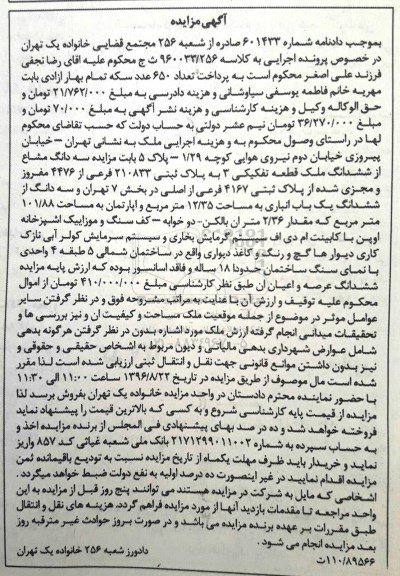 آگهی مزایده
بموجب دادنامه شماره ۶۰۱۴۳۳ صادره از شعبه ۲۵۶ مجتمع قضایی خانواده یک تهران
در خصوص پرونده اجرایی به کلاسه ۹۶۰۰۳۳/۲۵۶ ث ج محکوم علیه اقای رضا نجفی
فرزند علی اصغر محکوم است به پرداخت تعداد ۶۵۰ عدد سکه تمام بهار آزادی بابت
مهریه خانم فاطمه یوسفی سیاوشانی و هزینه دادرسی به مبلغ ۲۱/۷۶۲/۰۰۰ تومان و
حق الوکاله وکیل و هزینه کارشناسی و هزینه نشر آگهی به مبلغ ۷۰/۰۰۰ تومان و
مبلغ ۳۶/۲۷۰/۰۰۰ تومان نیم عشر دولتی به حساب دولت که حسب تقاضای محکوم
لها در راستای وصول محکوم به و هزینه اجرایی ملک به نشانی تهران – خیابان
پیروزی خیابان دوم نیروی هوایی کوچه ۱/۲۹ – پلاک ۵ بابت مزایده سه دانگ مشاع
از ششدانگ ملک قطعه تفکیکی ۳ به پلاک ثبتی ۲۱۰۸۳۳ فرعی از ۴۴۷۶ مفروز
و مجزی شده از پلاک ثبتی ۴۱۶۷ فرعی از اصلی در بخش ۷ تهران و سه دانگ از
ششدانگ یک باب انباری به مساحت ۱۲/۳۵ متر مربع و اپارتمان به مساحت ۱۰۱/۸۸
متر مربع که مقدار ۲/۳۶ متر ان بالکن- دو خوابه – کف سنگ و موزاییک اشپزخانه
اوپن با کابینت ام دی اف سیستم گرمایش بخاری و سیستم سرمایش کولر آبی نازک
کاری دیوار ها گچ و رنگ و کاغذ دیواری واقع در ساختمان شمالی ۵ طبقه ۴ واحدی
با نمای سنگ ساختمان حدودا ۱۸ ساله و فاقد اسانسور بوده که ارزش پایه مزایده
ششدانگ عرصه و اعیان ان طبق نظر کارشناسی مبلغ ۴۱۰/۰۰۰/۰۰۰ تومان از اموال
محکوم علیه توقیف و ارزش آن با عنایت به مراتب مشروحه فوق و در نظر گرفتن سایر
عوامل موثر در موضوع از جمله موقعیت ملک مساحت و کیفیت ان و نیز بررسی ها و
تحقیقات میدانی انجام گرفته ارزش ملک مورد اشاره بدون در نظر گرفتن هرگونه بدهی
شامل عوارض شهرداری بدهی مالیاتی و دیون مربوط به اشخاص حقیقی و حقوقی و
نیز بدون داشتن موانع قانونی جهت نقل و انتقال ثبتی ارزیابی شده است لذا مقرر
شده است مال موصوف از طریق مزایده در تاریخ ۱۳۹۶/۸/۲۲ ساعت ۱۱:۰۰ الی ۱۱:۳۰
با حضور نماینده محترم دادستان در واحد مزایده خانواده یک تهران بفروش برسد لذا
مزایده از قیمت پایه کارشناسی شروع و به کسی که بالاترین قیمت را پیشنهاد نماید
فروخته خواهد شد و ده در صد بهای پیشنهادی فی المجلس از برنده مزایده اخذ و
به حساب سپرده به شماره ۲۱۷۱۲۹۹۰۱۱۰۰۲ بانک ملی شعبه غیاثی کد ۸۵۷ واریز
نماید و خریدار باید ظرف مهلت یکماه از تاریخ مزایده نسبت به تودیع باقیمانده ثمن
مزایده اقدام نمایید در غیر اینصورت ده درصد اولیه به نفع دولت ضبط خواهد میگردد .
اشخاصی که مایل به شرکت در مزایده هستند می توانند پنج روز قبل از مزایده به این
واحد مراجعه تا مقدمات بازدید آنها از مورد مزایده فراهم گردد. هزینه های نقل و انتقال
طبق مقررات بر عهده برنده مزایده می باشد و در صورت بروز حوادث غیر مترقبه روز
بعد مزایده انجام می شود .
دادورز شعبه ۲۵۶ خانواده یک تهران
۱۱۰/۸۹۵۶۶ت